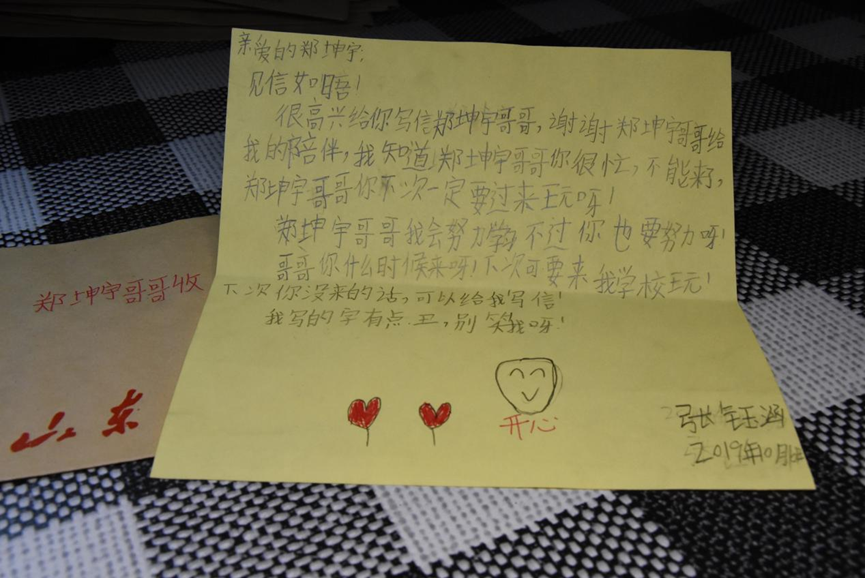 亲爱的郑坤宇:
见信如晤!
很高兴给你写信郑坤宇哥哥,谢谢郑坤宇哥哥给
我的陪伴,我知道郑坤宇哥哥你很忙,不能来,
郑坤宇哥哥你下次一定要过来玩呀!
郑坤宇哥哥我会努力学习不过你也要努力呀!
哥哥你什么时候来呀!下次可要来我学校玩!
下次你没来的话,可以给我写信!
我写的字有点丑,别笑我呀!
开心
张钰涵
2019年10月
郑坤宇哥哥收
山东